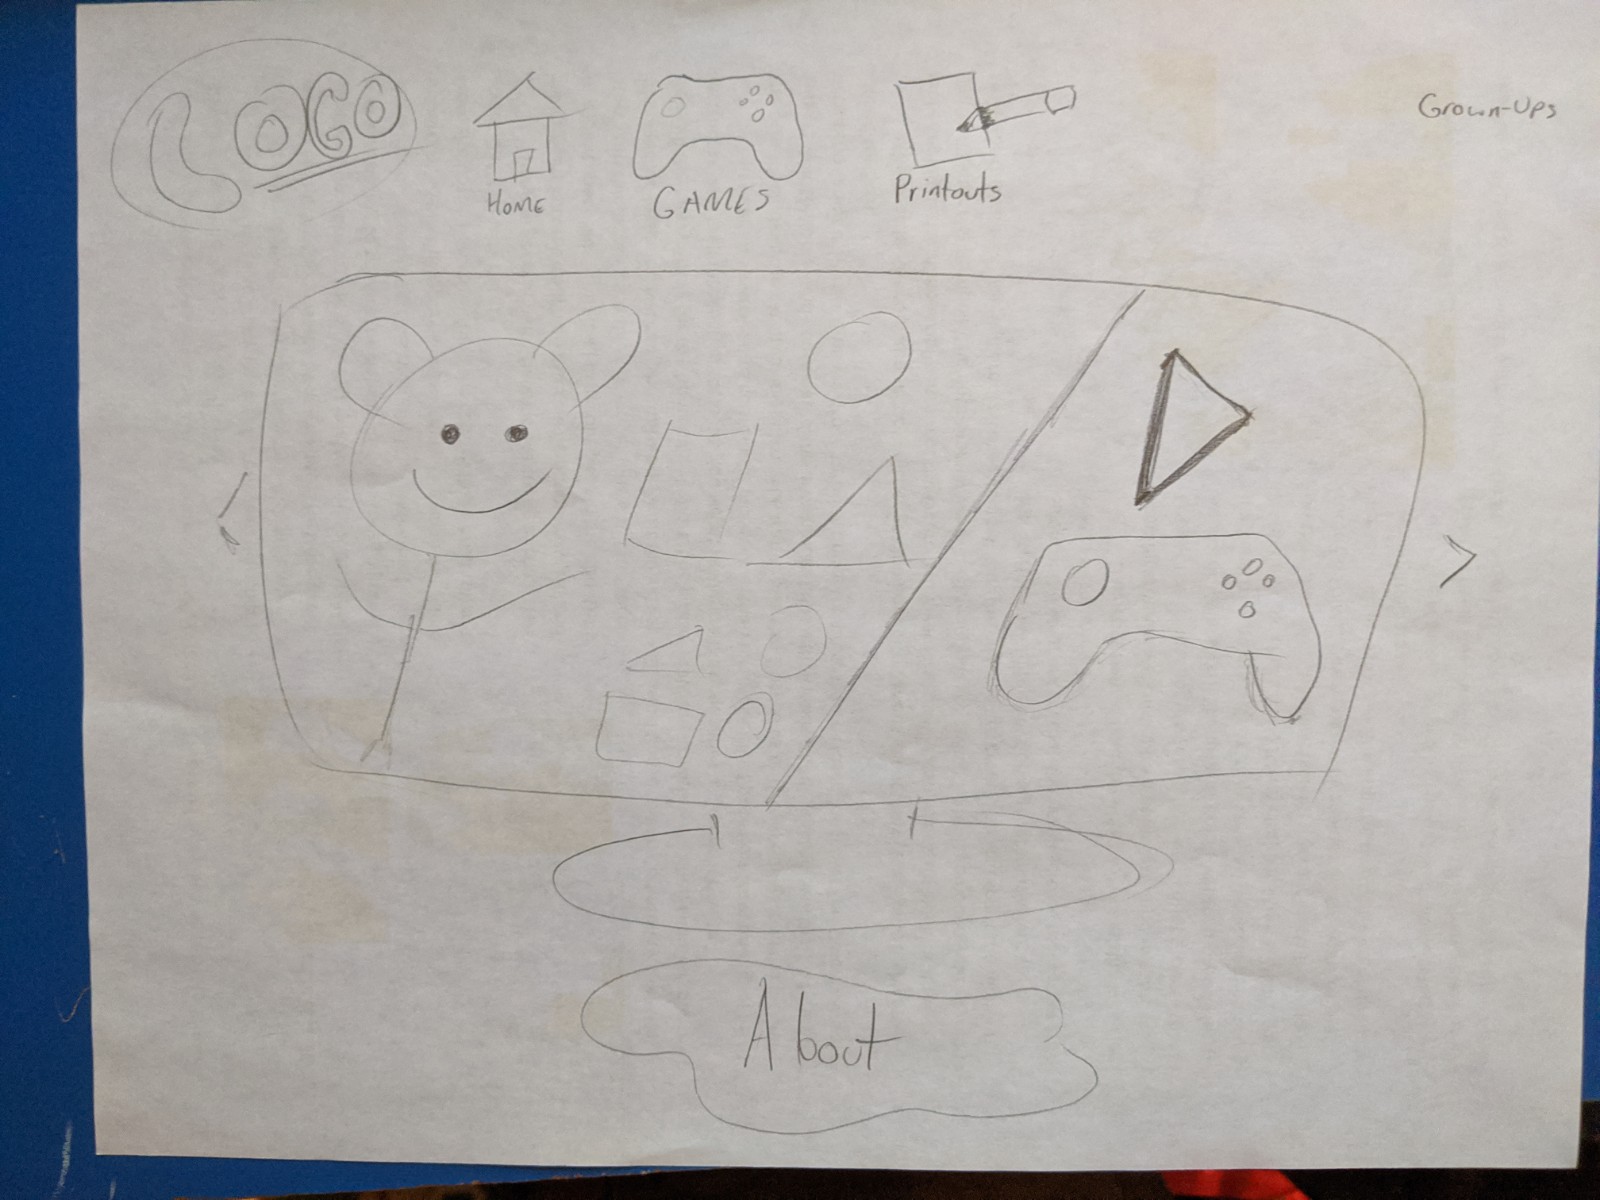 LOGO
HOME
GAMES
Printouts
Grown-Ups
<
>
About